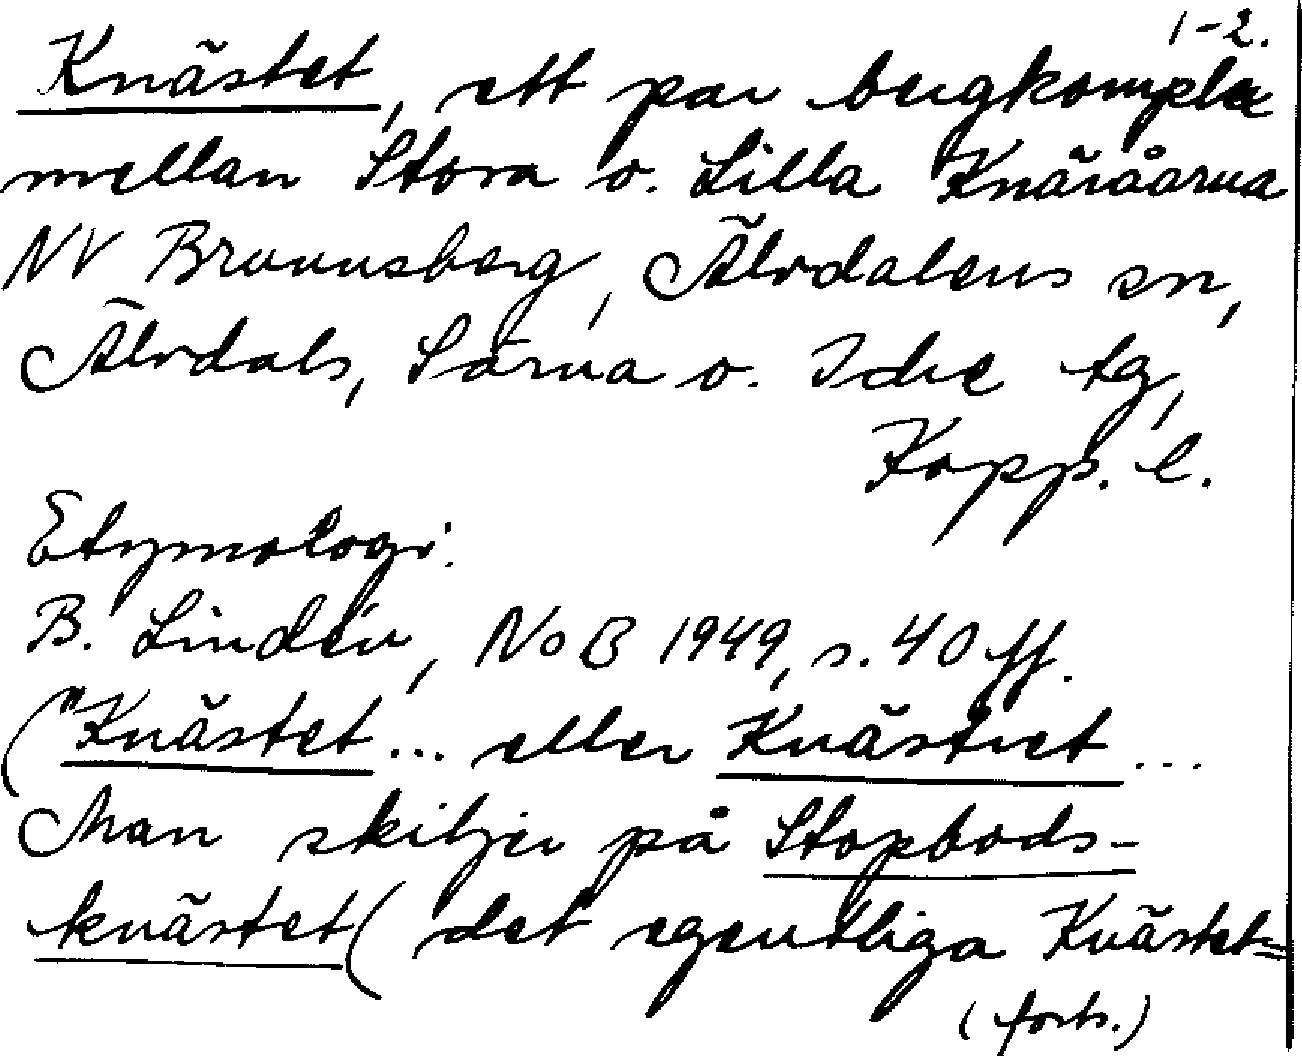 1-2.
Knästet, ett par bergkomplex
mellan Stora o. Lilla Knäråarna
NV Brunnsberg, Älvdalens sn,
Älvdals, Särna o. Idre tg,
Kopp. l.
Etymologi:
B. Lindén, NoB 1949, s. 40 ff.
("Knästet ... eller Knästret ...
Man skiljer på Stopbods-
knästet (det egentliga Knästet=
(forts.)